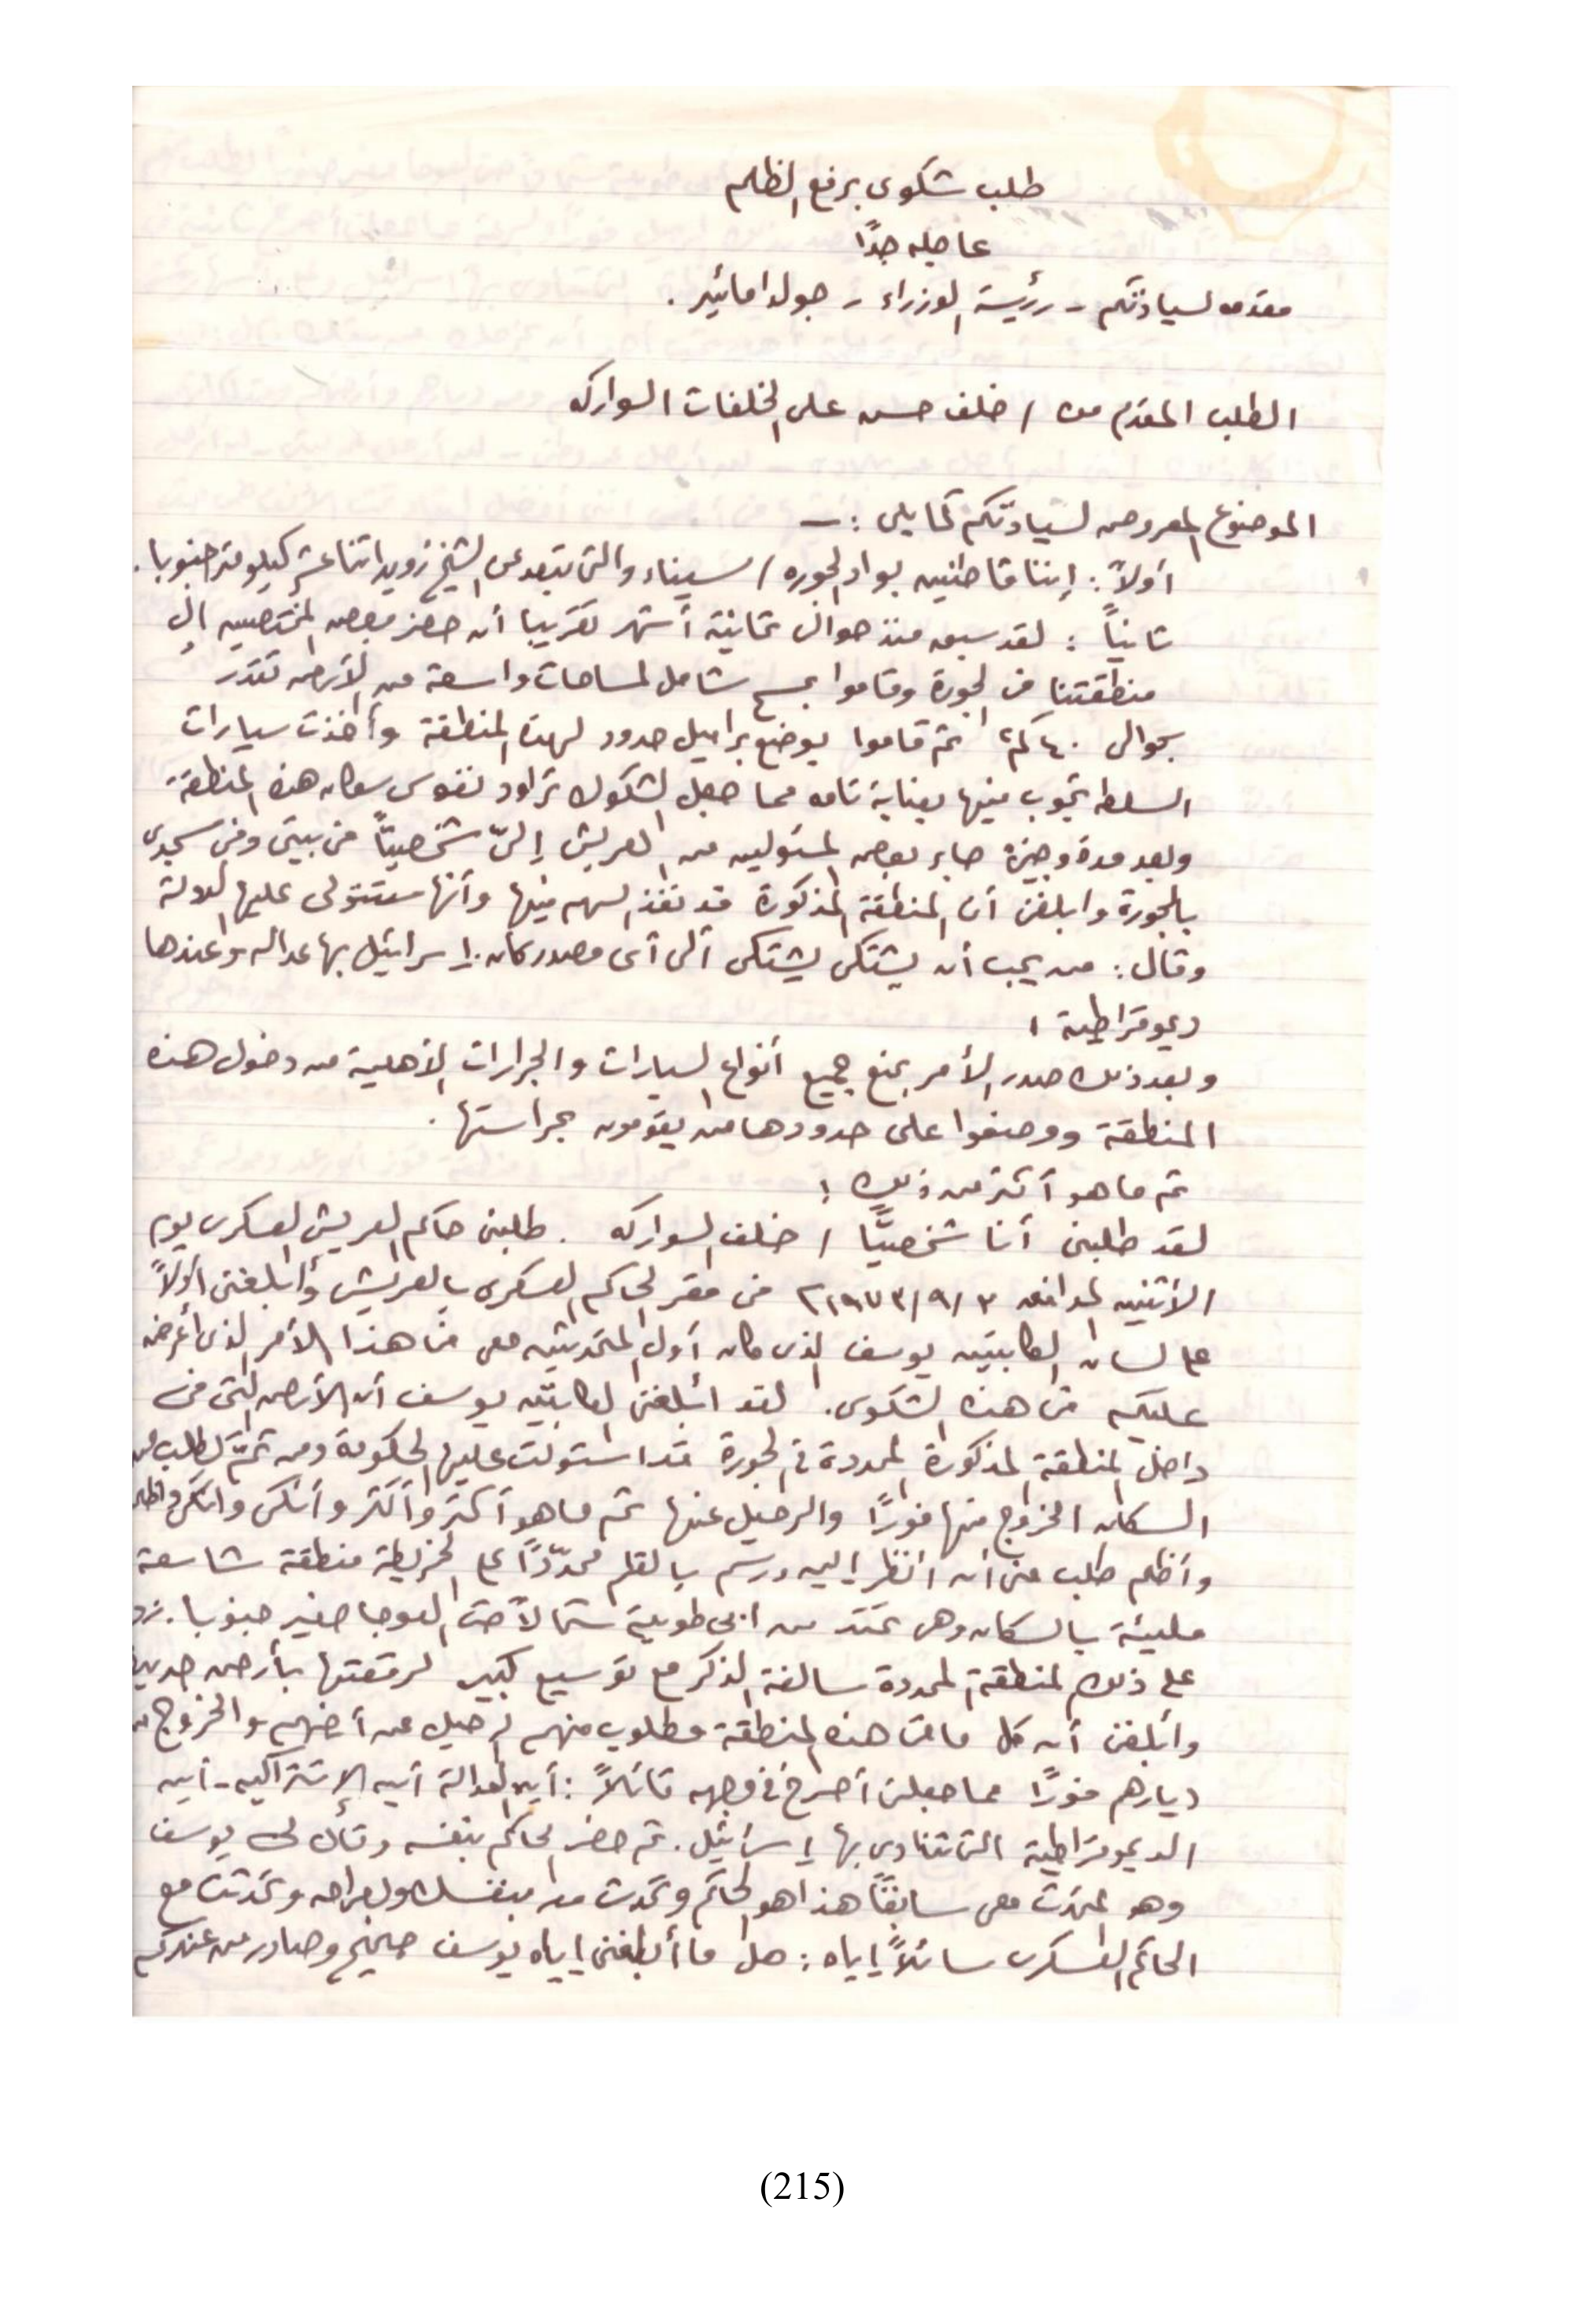 طلب شكوى برفع الظلم
عاجله جدًا
مقدمه لسيادتكم - رئيسة الوزراء - جولدا مائير .
الطلب المقدم من / خلف حسن على الخلفات السواركه
الموضوع المعروض لسيادتكم كما يلى : ــ
أولاً : إننا قاطنين بواد الجوره / سيناء والتى تبعد عن الشيخ زويد اثنا عشر كيلو متر جنوبا .
ثانياً : لقد سبق منذ حوالى ثمانية أشهر تقريبا أن حضر بعض المختصين إلى
منطقتنا فى الجورة وقاموا بمسح شامل لمساحات واسعة من الأرض تقدر
بحوالى ٤٠ كم٢ ثم قاموا بوضع براميل حدود لهذه المنطقة وأخذت سيارات
السلطه تجوب فيها بعناية تامه مما جعل الشكوك تراود نفوس سكان هذه المنطقة
وبعد مدة وجيزة جاء بعض المسئولين من العريش إلىّ شخصيًّا فى بيتى وفى مسجدى
بالجورة وابلغنى أن المنطقة المذكورة قد نفذ السهم فيها وأنها ستتولى عليها الدولة
وقال : من يحب أن يشتكى يشتكى ألى أى مصدر كان . إسرائيل بها عداله وعندها
ديموقراطية !
وبعد ذلك صدر الأمر بمنع جميع أنواع السيارات والجرارات الأهلية من دخول هذه
المنطقة ووضعوا على حدودها من يقومون بحراستها .
ثم ما هو أكثر من ذلك !
لقد طلبنى أنا شخصيًّا / خلف السواركه . طلبنى حاكم العريش العسكرى يوم
الأثنين الموافق ١٩٧٣/٩/٣م فى مقر الحاكم العسكرى بالعريش وأبلغنى أولاً
على لسان الكابتين يوسف الذى كان أول المتحدثين معى فى هذا الأمر الذى أعرضه
عليكم فى هذه الشكوى . لقد أبلغنى الكابتين يوسف أن الأرض التى فى
داخل المنطقة المذكورة المحددة فى الجورة قد استولت عليها الحكومة ومن ثمّ تطلب من
السكان الخروج منها فورًا والرحيل عنها ثم ما هو أكثر وأكثر وأنكى وانكى واظلم
وأظلم طلب منى أن انظر إليه ورسم بالقلم محدّدًا على الخريطة منطقة شاسعة
مليئة بالسكان وهى تمتد من ابى طويلة شمالاً حتى العوجا صغير جنوبا . زد
على ذلك المنطقة المحددة سالفة الذكر مع توسيع كبير لرقعتها بأرض جديدة
وأبلغنى أن كل ما فى هذه المنطقة مطلوب منهم الرحيل عن أرضهم والخروج من
ديارهم فورًا مما جعلنى أصرخ فى وجهه قائلاً : أين العدالة أين الإشتراكيه - أين
الديموقراطية التى تنادى بها إسرائيل . ثم حضر الحاكم بنفسه وقال لى يوسف
وهو المتحدث معى سابقًا هذا هو الحاكم وتحدث معه بنفسك وبصراحه وتحدثت مع
الحاكم العسكرى سائلاً إياه : هل ما أبلغنى إياه يوسف صحيح وصادر من عندكم
(215)